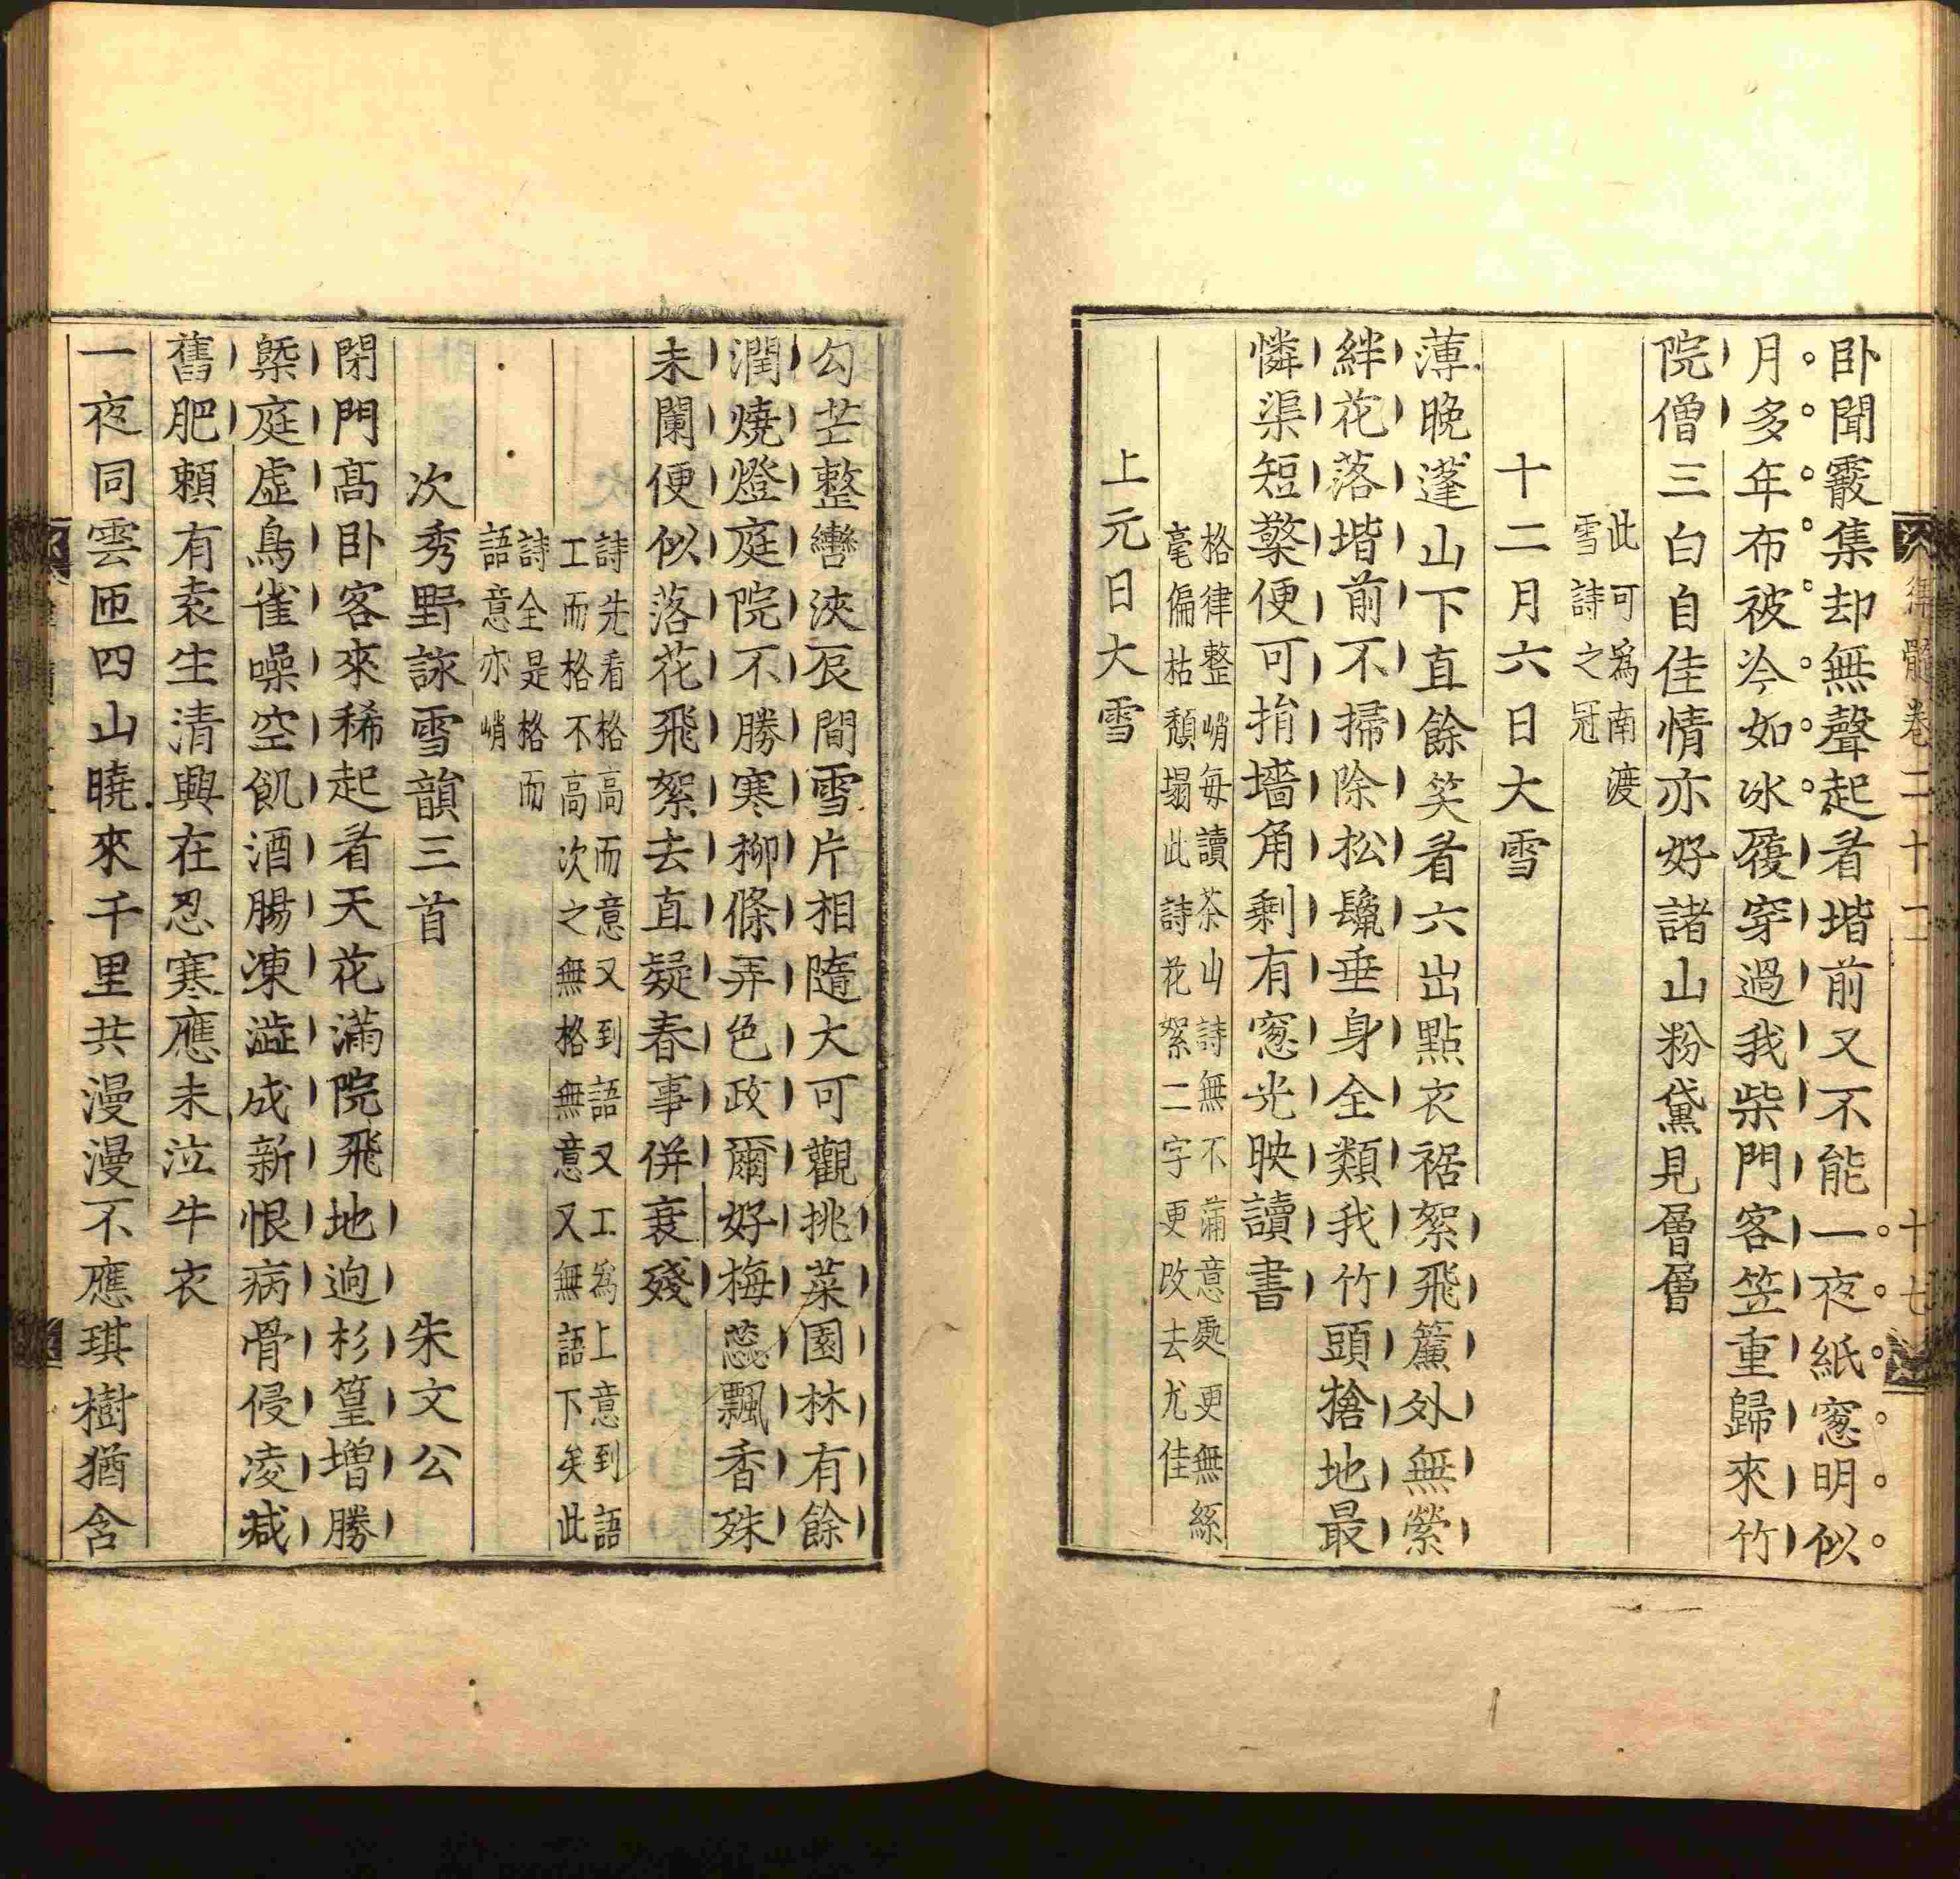 律髓卷二十一
十七
卧聞霰集却無聲起看堦前又不能一夜紙窓明似
月多年布被冷如冰履穿過我柴門客笠重歸來竹
院僧三白自佳情亦好諸山粉黛見層層
此可為南渡
雪詩之冠
十二月六日大雪
薄晚蓬山下直餘笑看六出點衣裾絮飛簾外無縈
絆花落堦前不掃除松鬣垂身全類我竹頭搶地最
憐渠短檠便可捐墻角剩有窓光映讀書
格律整峭每讀茶山詩無不滿意處更無絲
毫偏枯頹塌此詩花絮二字更改去尤佳
上元日大雪
勾芒整轡浹辰間雪片相隨大可觀挑菜園林有餘
潤燒燈庭院不勝寒柳條弄色政爾好梅蕊飄香殊
未闌便似落花飛絮去直疑春事併衰殘
詩先看格高而意又到語又工為上意到語
工而格不高次之無格無意又無語下矣此
詩全是格而
語意亦峭
次秀野詠雪韻三首 朱文公
閉門高卧客來稀起看天花滿院飛地逈杉篁增勝
槩庭虛鳥雀噪空飢酒腸凍澁成新恨病骨侵凌減
舊肥賴有袁生清興在忍寒應未泣牛衣
一夜同雲匝四山曉來千里共漫漫不應琪樹猶含